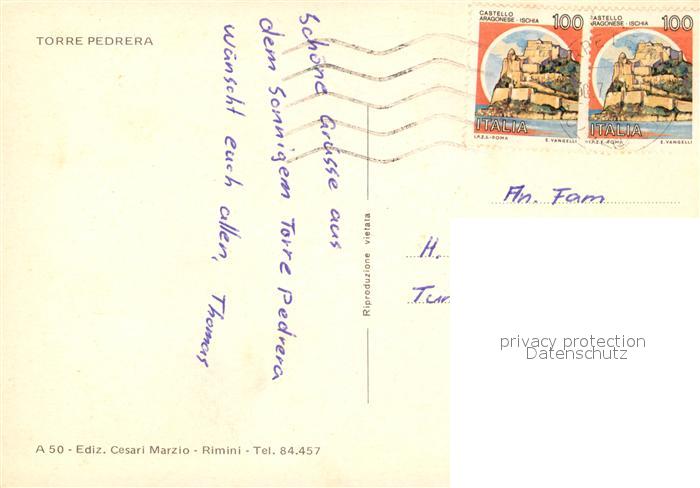 TORRE PEDRERA
Schöne Grüsse aus
dem Sonnigem Torre Pedrera
wünscht euch allen, Thomas
Reproduzione vietata
CASTELLO
ARAGONESE - ISCHIA 100
ITALIA
I.P.Z.S. - ROMA E. VANGELLI
CASTELLO
ARAGONESE - ISCHIA 100
ITALIA
I.P.Z.S. - ROMA E. VANGELLI
An. Fam
H.
Tur
privacy protection
Datenschutz
A 50 - Ediz. Cesari Marzio - Rimini - Tel. 84.457